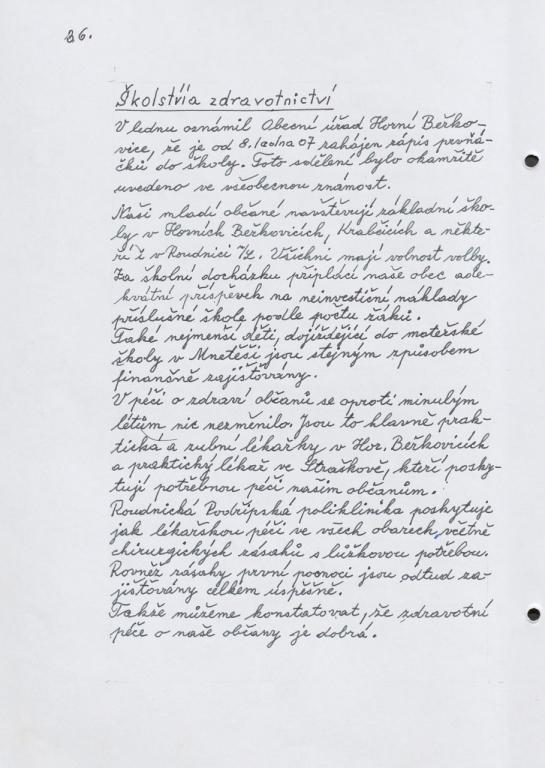 26.
Školství a zdravotnictví
V lednu oznámil Obecní úřad Horní Beřko-
vice, že je od 8. ledna 07 zahájen zápis prvňá-
čků do školy. Toto sdělení bylo okamžitě
uvedeno ve všeobecnou známost.
Naši mladí občané navštěvují základní ško-
ly v Horních Beřkovicích, Krabčicích a někte-
ří i v Roudnici n/L. Všichni mají volnost volby.
Za školní docházku připlácí naše obec ade-
kvátní příspěvek na neinvestiční náklady
příslušné škole podle počtu žáků.
Také nejmenší děti, dojíždějící do mateřské
školy v Mnetěši jsou stejným způsobem
finančně zajišťovány.
V péči o zdraví občanů se oproti minulým
létům nic nezměnilo. Jsou to hlavně prak-
tická a zubní lékařky v Hor. Beřkovicích
a praktický lékař ve Straškově, kteří posky-
tují potřebnou péči našim občanům.
Roudnická Podřipská poliklinika poskytuje
jak lékařskou péči ve všech oborech, včetně
chirurgických zásahů s lůžkovou potřebou.
Rovněž zásahy první pomoci jsou odtud za-
jišťovány celkem úspěšně.
Takže můžeme konstatovat, že zdravotní
péče o naše občany je dobrá.